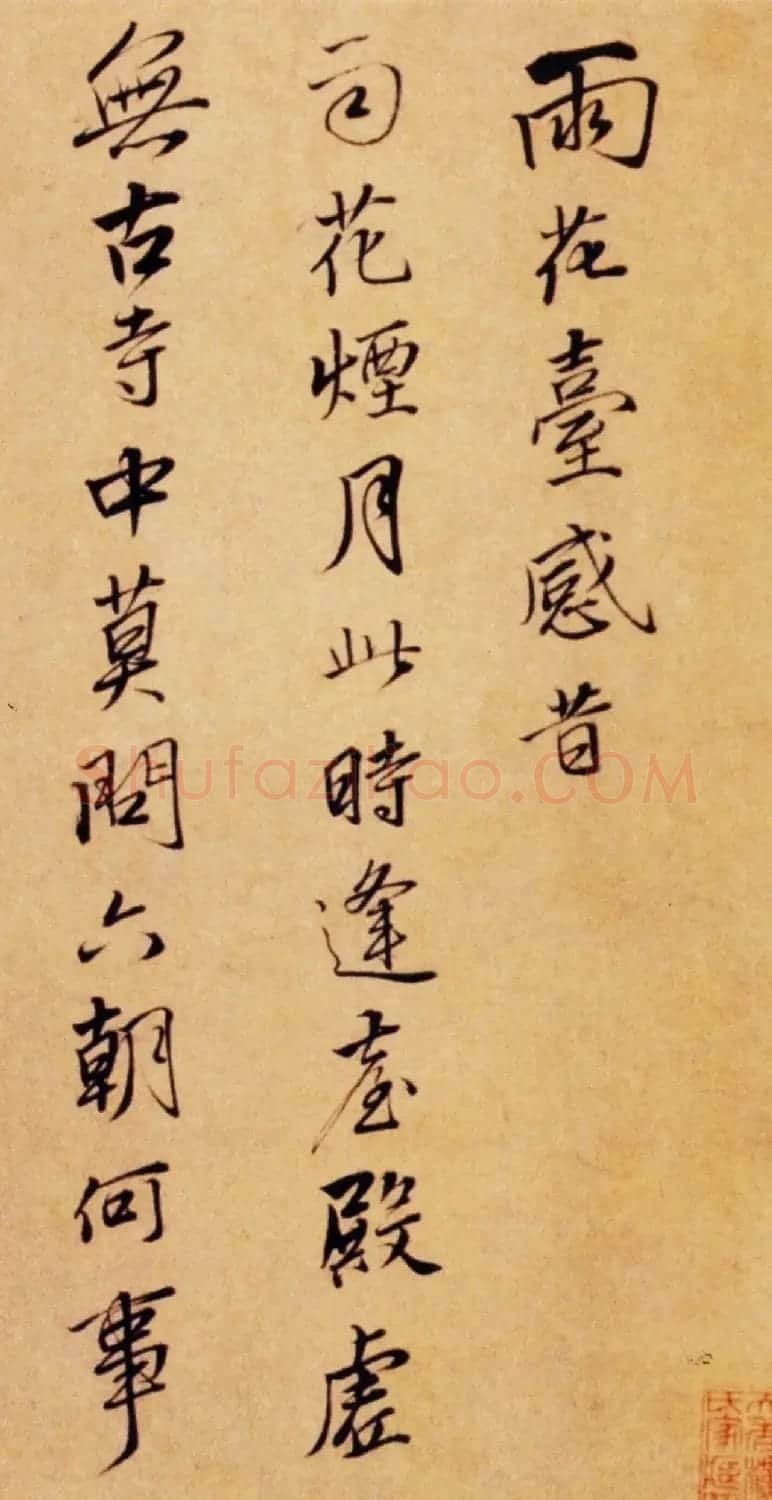 雨花臺感昔
雨花煙月此時逢臺殿虛
無古寺中莫問六朝何事
Shufazihao.COM